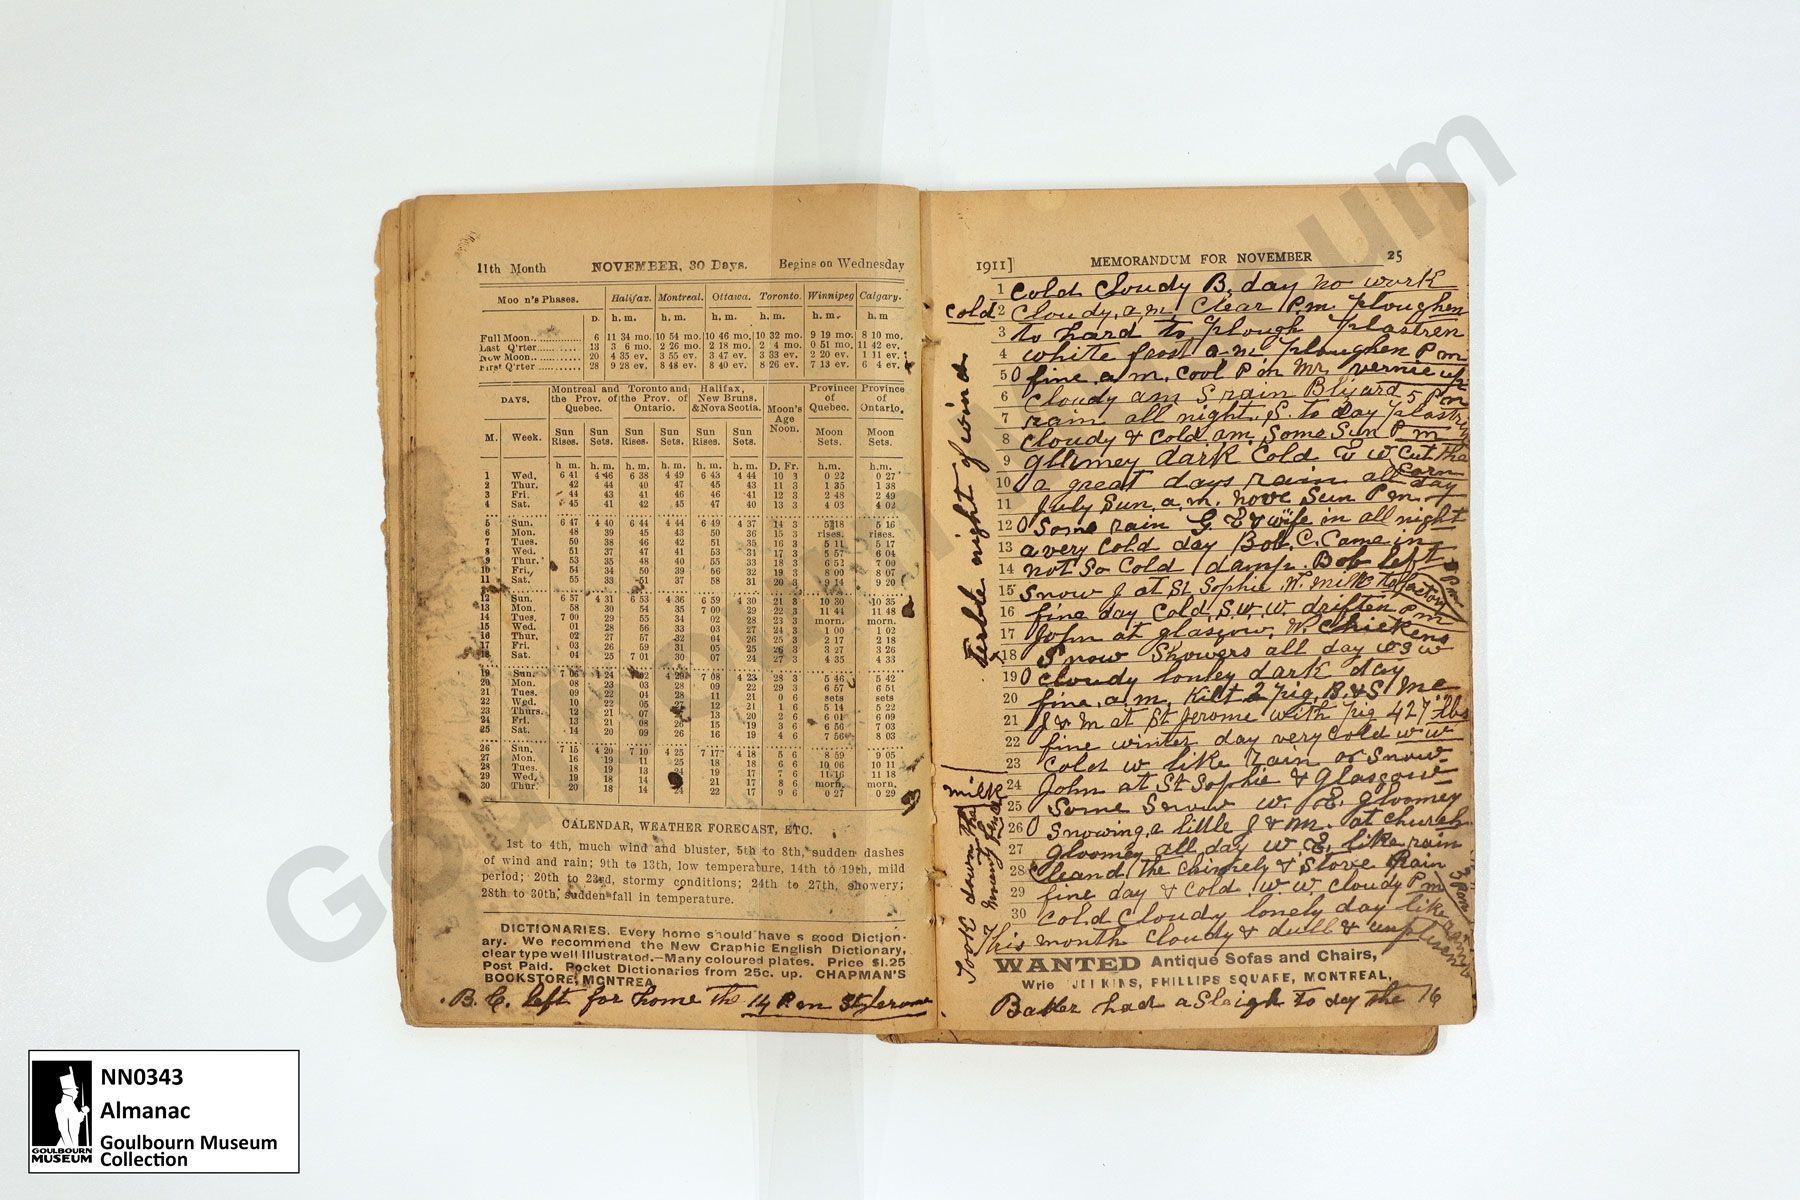 11th Month NOVEMBER, 30 Days. Begins on Wednesday
Moon's Phases. Halifax. Montreal. Ottawa. Toronto. Winnipeg Calgary.
D. h. m. h. m. h. m. h. m. h. m. h. m
Full Moon 6 11 34 mo. 10 54 mo. 10 46 mo. 10 32 mo. 9 19 mo. 8 10 mo.
Last Q'rter 13 3 6 mo. 2 26 mo. 2 18 mo. 2 4 mo. 0 51 mo. 11 42 ev.
New Moon 20 4 35 ev. 3 55 ev. 3 47 ev. 3 33 ev. 2 20 ev. 1 11 ev.
First Q'rter 28 9 28 ev. 8 48 ev. 8 40 ev. 8 26 ev. 7 13 ev. 6 4 ev.
DAYS. Montreal and the Prov. of Quebec. Toronto and the Prov. of Ontario. Halifax, New Bruns, & Nova Scotia. Moon's Age Noon. Province of Quebec. Province of Ontario.
M. Week. Sun Rises. Sun Sets. Sun Rises. Sun Sets. Sun Rises. Sun Sets. Moon Sets. Moon Sets.
h. m. h. m. h. m. h. m. h. m. h. m. D. Fr. h.m. h.m.
1 Wed. 6 41 4 46 6 38 4 49 6 43 4 44 10 3 0 22 0 27
2 Thur. 42 44 40 47 45 43 11 3 1 35 1 38
3 Fri. 44 43 41 46 46 41 12 3 2 48 2 49
4 Sat. 45 41 42 45 47 40 13 3 4 03 4 02
5 Sun. 6 47 4 40 6 44 4 44 6 49 4 37 14 3 5 18 5 16
6 Mon. 48 39 45 43 50 36 15 3 rises. rises.
7 Tues. 50 38 46 42 51 35 16 3 5 11 5 17
8 Wed. 51 37 47 41 53 31 17 3 5 57 6 04
9 Thur. 53 35 48 40 55 33 18 3 6 52 7 00
10 Fri. 54 34 50 39 56 32 19 3 8 00 8 07
11 Sat. 55 33 51 37 58 31 20 3 9 14 9 20
12 Sun. 6 57 4 31 6 53 4 36 6 59 4 30 21 3 10 30 10 35
13 Mon. 58 30 54 35 7 00 29 22 3 11 44 11 48
14 Tues. 7 00 29 55 34 02 28 23 3 morn. morn.
15 Wed. 01 28 56 33 03 27 24 3 1 00 1 02
16 Thur. 02 27 57 32 04 26 25 3 2 17 2 18
17 Fri. 03 26 59 31 05 25 26 3 3 27 3 26
18 Sat. 04 25 7 01 30 07 24 27 3 4 35 4 33
19 Sun. 7 06 4 24 7 02 4 29 7 08 4 23 28 3 5 46 5 42
20 Mon. 08 23 03 28 09 22 29 3 6 57 6 51
21 Tues. 09 22 04 28 11 21 0 6 sets sets
22 Wed. 10 22 05 27 12 21 1 6 5 14 5 22
23 Thurs. 12 21 07 13 20 2 6 6 01 6 09
24 Fri. 13 21 08 26 15 19 3 6 6 56 7 03
25 Sat. 14 20 09 26 16 19 4 6 7 56 8 03
26 Sun. 7 15 4 20 7 10 4 25 7 17 4 18 5 6 8 59 9 05
27 Mon. 16 19 11 25 18 18 6 6 10 06 10 11
28 Tues. 18 19 13 24 19 17 7 6 11 16 11 18
29 Wed. 19 18 14 21 17 8 6 morn. morn.
30 Thur. 20 18 14 24 22 17 9 6 0 27 0 29
CALENDAR, WEATHER FORECAST, ETC.
1st to 4th, much wind and bluster, 5th to 8th, sudden dashes
of wind and rain; 9th to 13th, low temperature, 14th to 19th, mild
period; 20th to 23rd, stormy conditions; 24th to 27th, showery;
28th to 30th, sudden fall in temperature.
DICTIONARIES. Every home should have s good Diction-
ary. We recommend the New Craphic English Dictionary,
clear type well Illustrated.—Many coloured plates. Price $1.25
Post Paid. Pocket Dictionaries from 25c. up. CHAPMAN'S
BOOKSTORE, MONTREA
B. C. left for home the 14 P.m St Jerome
1911] MEMORANDUM FOR NOVEMBER 25
1 Cold Cloudy B. day no work
cold 2 Cloudy, a.m. Clear P.m. Ploughen
3 to hard to Plough Plastren
4 white frost a.m. Ploughen P m
5 0 fine a m. cool P m Mr. Vernie up
6 Cloudy am S. rain Blizard 5 P m
7 rain all night. S. to day Plastrin
8 Cloudy & Cold am. Some Sun P m
9 glumey dark Cold E w Cut the Corn
10 a great days rain all day
11 July Sun a.m. nove Sun P m.
12 0 Some rain G. E & wife in all night
13 a very Cold day Bob. C. Came in
14 not So Cold damp. Bob left 2 P m
15 Snow J at St Sophie W. milk to factory
16 fine day Cold S.W.W. driften P m
17 John at glasgow, W. Chickens
x18 Snow Showers all day w s w
19 0 Cloudy lonley dark day
20 fine, a.m. Kilt 2 Pig, B. & S. Mc
21 J & M at St Jerome with Pig 427 lbs
22 fine winter day very Cold w w
23 Cold w like rain or Snow
24 John at St Sophie & Glasgow
25 Some Snow w. E. gloomey
26 0 Snowing a little J & M. at Church
27 Gloomey all day W. E. like rain
28 Cleand the Chimely & Stove Rain 3 Pm
29 fine day & Cold W. W. Cloudy P m
30 Cold Cloudy lonely day like rain
This month Cloudy & dull &
terble night of wind
milk
Took down the
WANTED Antique Sofas and Chairs,
Wrie JENKINS, PHILLIPS SQUARE, MONTREAL,
Baker had a Sleigh to day the 16
Goulbourn Museum
NN0343
Almanac
Goulbourn Museum
Collection
GOULBOURN
MUSEUM